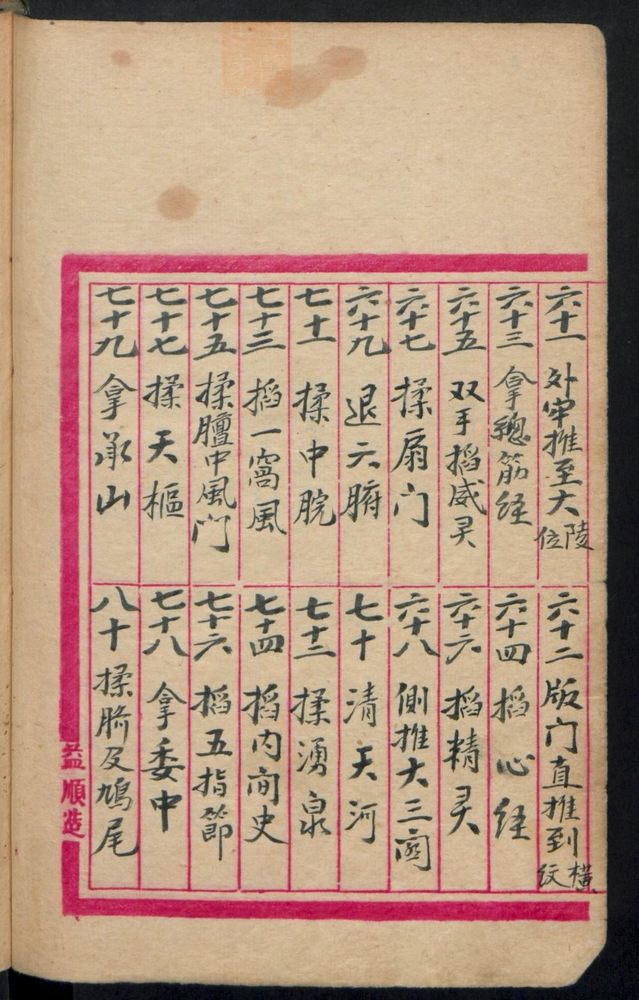 六十一 外牢推至大陵位
六十二 版门直推到横纹
六十三 拿總筋经
六十四 掐心经
六十五 双手掐威灵
六十六 掐精灵
六十七 揉扇门
六十八 側推大三関
六十九 退六腑
七十 清天河
七十一 揉中脘
七十二 揉湧泉
七十三 掐一窩風
七十四 掐内间史
七十五 揉膻中風门
七十六 掐五指節
七十七 揉天樞
七十八 拿委中
七十九 拿承山
八十 揉臍及鳩尾
益順造